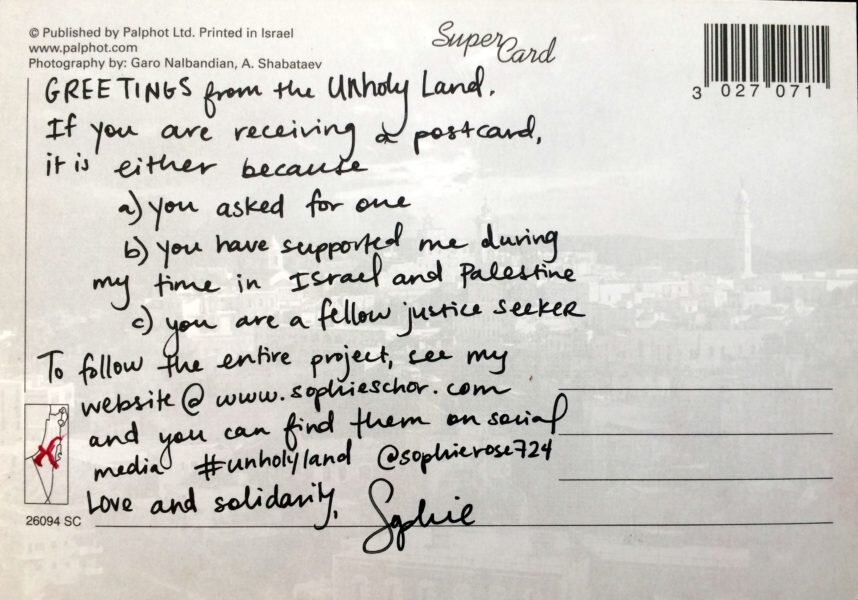 © Published by Palphot Ltd. Printed in Israel
www.palphot.com
Photography by: Garo Nalbandian, A. Shabataev
Super Card
3 027 071
GREETINGS from the Unholy Land.
If you are receiving a postcard,
it is either because
a) you asked for one
b) you have supported me during
my time in Israel and Palestine
c) you are a fellow justice seeker
To follow the entire project, see my
website @ www.sophieschor.com
and you can find them on social
media #unholyland @sophierose724
Love and solidarity,
Sophie
26094 SC